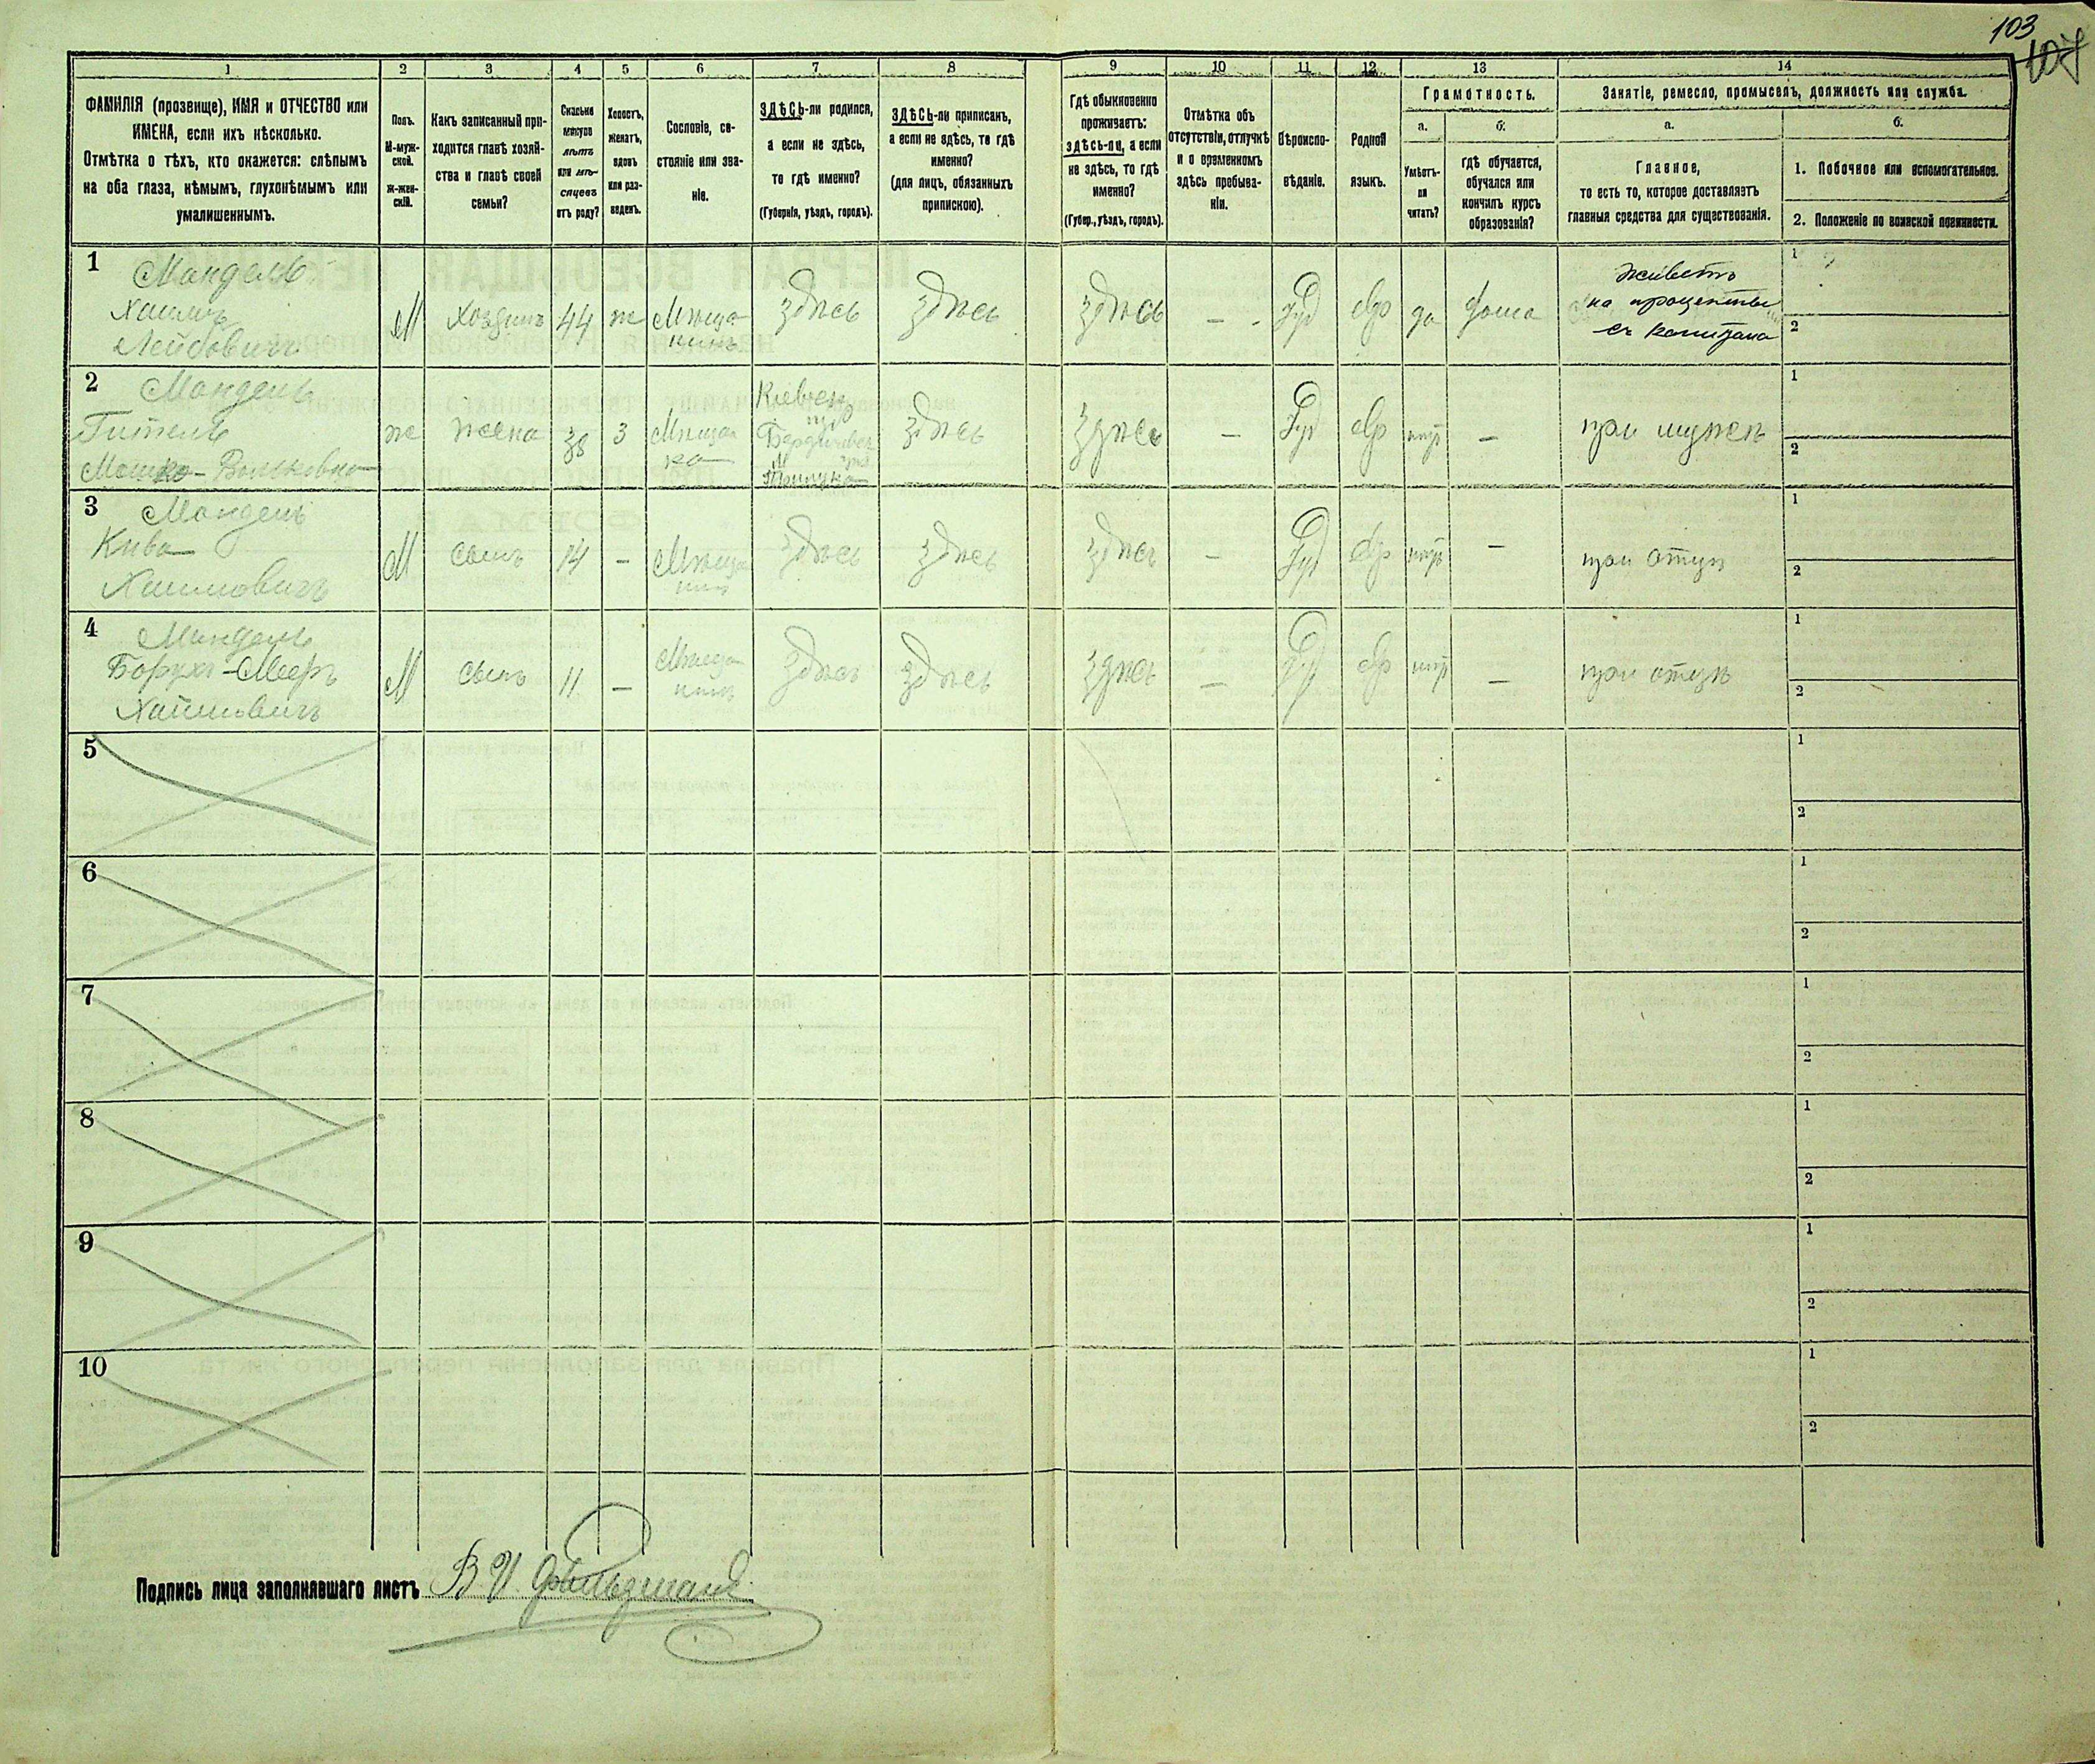 103
107
1 2 3 4 5 6 7 8 9 10 11 12 13 14
ФАМИЛІЯ (прозвище), ИМЯ и ОТЧЕСТВО или
ИМЕНА, если ихъ нѣсколько.
Отмѣтка о тѣхъ, кто окажется: слѣпымъ
на оба глаза, нѣмымъ, глухонѣмымъ или
умалишеннымъ.
Полъ.
М-муж-
ской.
Ж-жен-
скій.
Какъ записанный при-
ходится главѣ хозяй-
ства и главѣ своей
семьи?
Сколько
минуло
лѣтъ
или мѣ-
сяцевъ
отъ роду?
Холостъ,
женатъ,
вдовъ
или раз-
веденъ.
Сословіе, со-
стояніе или зва-
ніе.
ЗДѢСЬ-ли родился,
а если не здѣсь,
то гдѣ именно?
(Губернія, уѣздъ, городъ).
ЗДѢСЬ-ли приписанъ,
а если не здѣсь, то гдѣ
именно?
(для лицъ, обязанныхъ
припискою).
Гдѣ обыкновенно
проживаетъ:
здѣсь-ли, а если
не здѣсь, то гдѣ
именно?
(Губер., уѣздъ, городъ).
Отмѣтка объ
отсутствіи, отлучкѣ
и о временномъ
здѣсь пребыва-
ніи.
Вѣроиспо-
вѣданіе.
Родной
языкъ.
Грамотность.
а.
Умѣетъ-
ли
читать?
б.
гдѣ обучается,
обучался или
кончилъ курсъ
образованія?
Занятіе, ремесло, промыселъ, должность или служба.
а.
Главное,
то есть то, которое доставляетъ
главныя средства для существованія.
б.
1. Побочное или вспомогательное.
2. Положеніе по воинской повинности.
1
Мандель
Хаимъ
Лейбовичъ
М
хозяинъ
44
ж
Мѣща
нинъ
здѣсь
здѣсь
здѣсь
—
Іуд
евр
да
дома
живетъ
на проценты
съ капитала
1
2
2
Мандель
Гитель
Мошко-Вольковна
ж
жена
38
З
Мѣщан
ка
Кіевск
губ
Бердичевск
здѣсь
здѣсь
—
Іуд
евр
нѣт
—
при мужѣ
1
2
3
Мандель
Кива
Хаимовичъ
М
сынъ
14
—
Мѣща
нинъ
здѣсь
здѣсь
здѣсь
—
Іуд
евр
нѣт
—
при отцѣ
1
2
4
Мандель
Борухъ-Меер
Хаимовичъ
М
сынъ
11
—
Мѣща
нинъ
здѣсь
здѣсь
здѣсь
—
Іуд
евр
нѣт
—
при отцѣ
1
2
5
1
2
6
1
2
7
1
2
8
1
2
9
1
2
10
1
2
Подпись лица заполнявшаго листъ